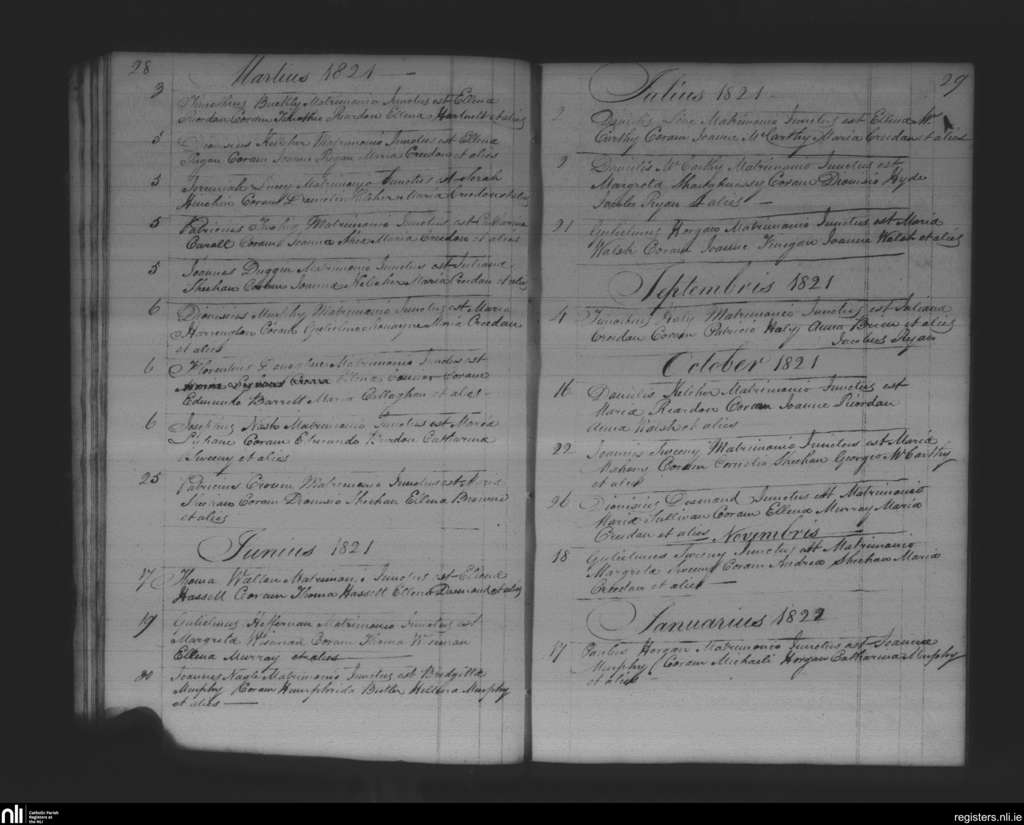 28
Martius 1821
3
Timotheus Buckly Matrimonio Junctus est Ellena
Riordan Coram Timotheo Riordan Ellena Hartnett et aliis
5
Dionisius Kelcher Matrimonio Junctus est Ellena
Regan Coram Joanne Regan Maria Creedan et aliis
5
Jeremiah Lucey Matrimonio Junctus est Norah
Coram Kelcher Maria Creedan et aliis
5
Patricius Matrimonio Junctus est Catharina
Caroll Coram Joanna Maria Creedan et aliis
5
Joannes Duggan Matrimonio Junctus est Juliana
Sheehan Coram Joanna Kelicher Maria Creedan et aliis
6
Dionisius Murphy Matrimonio Junctus est Maria
Harrington Coram Gulielmo Maria Creedan
et aliis
6
Florentius Matrimonio Junctus est
Ellena Connor Coram
Edmundo Barrett Maria Callaghan et aliis
6
Josephus Nash Matrimonio Junctus est Maria
Coram Edwardo Riordan Catharina
Sweeny et aliis
25
Patricius Crowen Matrimonio Junctus est
Sheehan Coram Dionisio Sheehan Ellena Browne
et aliis
Junius 1821
17
Thoma Wallen Matrimonio Junctus est Eliena
Hassett Coram Thoma Hassett Ellena Desmond et aliis
19
Gulielmus Heffernan Matrimonio Junctus est
Margreta Wiseman Coram Thoma Wiseman
Ellena Murray et aliis
Joannes Nagle Matrimonio Junctus est Bridgitta
Murphy Coram Humphrida Butler Hellena Murphy
et aliis
29
Julius 1821
2
Daniels Matrimonio Junctus est Ellena Mc
Carthy Coram Joanne McCarthy Maria Creedan et aliis
2
Daniels McCarthy Matrimonio Junctus est
Margreta Coram Dionisio Hyde
Jacobo Ryan et aliis
21
Gulielmus Horgan Matrimonio Junctus est Maria
Walsh Coram Joanne Finegan Joanna Walsh et aliis
Septembris 1821
4
Timotheus Haly Matrimonio Junctus est Juliana
Creedan Coram Patricio Haly Anna Brien et aliis
Jacobus Ryan
October 1821
16
Daniels Kelcher Matrimonio Junctus est
Maria Reardon Coram Joanne Riordan
Anna Walsh et aliis
22
Joannes Sweeny Matrimonio Junctus est Maria
Mahony Coram Cornelio Sheehan Georgeo McCarthy
et aliis
26
Dionisius Desmond Junctus est Matrimonio
Maria Sullivan Coram Ellena Murray Maria
Creedan et aliis
Novembris
18
Gulielmus Sweeny Junctus est Matrimonio
Margreta Sweeny Coram Andrea Sheehan Maria
Creedan et aliis
Januarius 1822
17
Paulus Horgan Matrimonio Junctus est Joanna
Murphy Coram Michaeli Horgan Catharina Murphy
et aliis
nli
Catholic Parish
Registers at
the NLI
registers.nli.ie